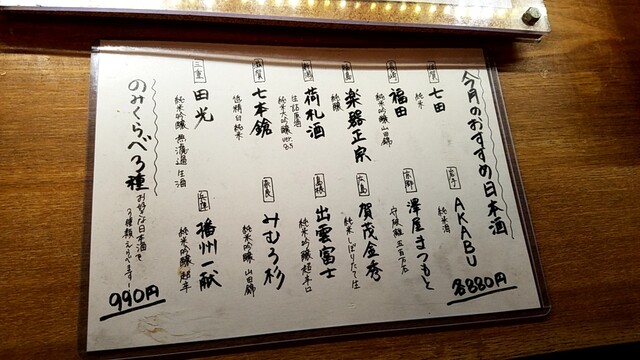 今月のおすすめ日本酒
各880円
佐賀
七田
純米
長崎
福田
純米吟醸 山田錦
福島
楽器正宗
純醸
新潟
荷札酒
生詰原酒
純米大吟醸 ver.8.5
滋賀
七本鎗
低精白純米
三重
田光
純米吟醸 無濾過 生酒
岩手
AKABU
純米酒
京都
澤屋まつもと
守破離 五百万石
広島
賀茂金秀
純米しぼりたて生
島根
出雲富士
純米吟醸 超辛口
奈良
みむろ杉
純米吟醸 山田錦
兵庫
播州一献
純米吟醸 超辛
のみくらべ3種
お好きな日本酒を
3種類えらべます！
990円